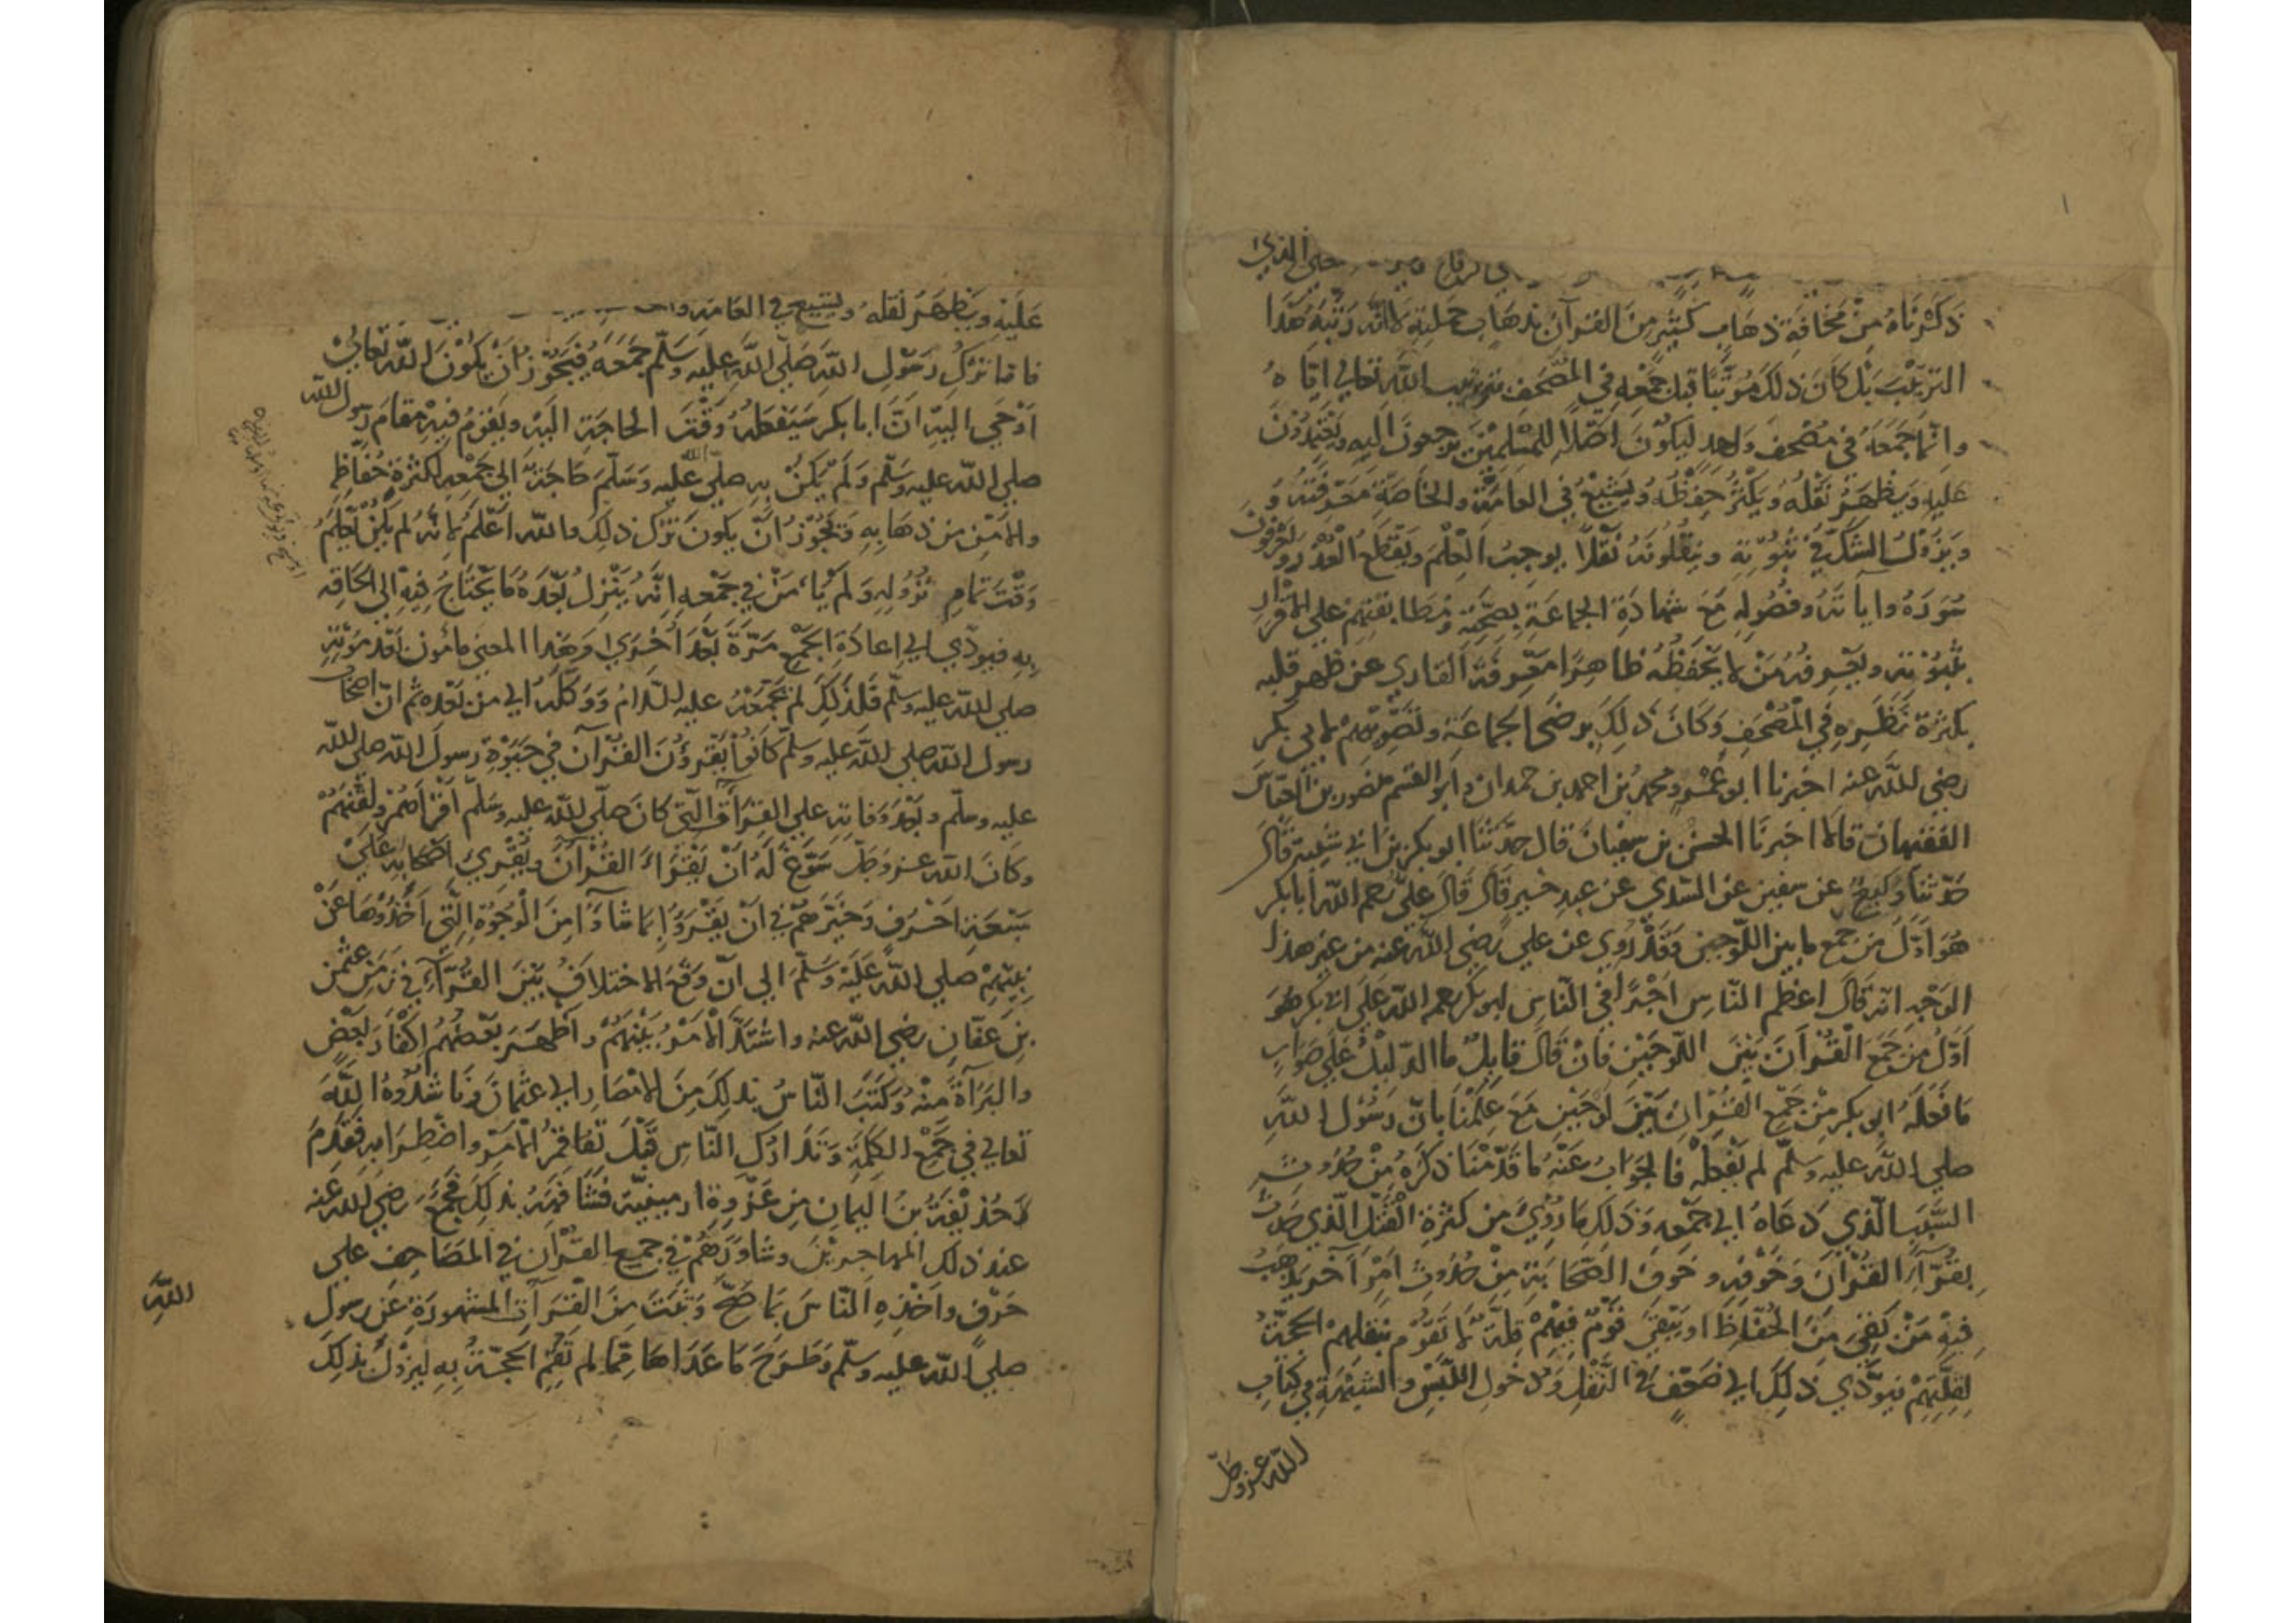 حتى الذي
ذكرناه من مخافة ذهاب كثير من القرآن بذهاب حملته لا انه رتبه هذا
الترتيب بل كان ذلك مرتبا قبل جمعه في المصحف بترتيب الله تعالى اياه
وانما جمعه في مصحف واحد ليكون اصلا للمسلمين يرجعون اليه ويعتمدون
عليه ويظهر نقله ويكثر حفظه ويشيع في العامة والخاصة معرفته و
ويزول الشك في ثبوته وينقلونه نقلا يوجب العلم ويقطع العذر ويعرفون
سوره وآياته وفصوله مع شهادة الجماعة بصحته ومطابقتهم على الاقرار
بثبوته ويعرفه من لا يحفظه ظاهرا معرفة القاري عن ظهر قلبه
بكثرة نظره في المصحف وكان ذلك برضى الجماعة وتصويبهم لابي بكر
رضي الله عنه اخبرنا ابو عمرو محمد بن احمد بن حمدان وابو القسم منصور بن العباس
الفقيهان قالا اخبرنا الحسن بن سفيان قال حدثنا ابو بكر بن ابي شيبة قال
حدثنا وكيع عن سفين عن السدي عن عبد خير قال قال علي رحم الله ابا بكر
هو اول من جمع ما بين اللوحين وقد روي عن علي رضي الله عنه من غير هذا
الوجه انه قال اعظم الناس اجرا في الناس ابو بكر رحم الله على ابي بكر هو
اول من جمع القرآن بين اللوحين فان قال قايل ما الدليل على صواب
ما فعله ابو بكر من جمع القرآن بين لوحين مع علمنا بان رسول الله
صلى الله عليه وسلم لم يفعله فالجواب عنه ما قدمنا ذكره من حدوث
السبب الذي دعاه الى جمعه وذلك ما روي من كثرة القتل الذي حدث
بقرآء القرآن وخوفه وخوف الصحابة من حدوث امر آخر يذهب
فيه من بقي من الحفاظ او يبقى قوم فيهم قلة لا تقوم بنقلهم الحجة
لقلتهم فيودي ذلك الى ضعف في النقل ودخول اللبس والشبهة في كتاب
الله عز وجل
عليه ويظهر نقله ويشيع في العامة
فاما ترك رسول الله صلى الله عليه وسلم جمعه فيجوز ان يكون الله تعالى
اوحى اليه ان ابا بكر سيفعله وقت الحاجة اليه ويقوم فيه مقام رسول الله
صلى الله عليه وسلم ولم يكن به صلى الله عليه وسلم حاجة الى جمعه لكثرة حفاظه
والامن من ذهابه وتجوز ان يكون ترك ذلك والله اعلم لانه لم يكن يعلم
وقت تمام نزوله ولم يأمن في جمعه انه ينزل بعده ما يحتاج فيه الى الحاقه
به فيودي الى اعادة الجمع مرة بعد اخرى وهذا المعنى مامون بعد موته
صلى الله عليه وسلم فلذلك لم يجمعه عليه السلام ووكله الى من بعده ثم ان اصحاب
رسول الله صلى الله عليه وسلم كانوا يقرؤن القرآن في حيوة رسول الله صلى الله
عليه وسلم وبعد وفاته على القرآة التي كان صلى الله عليه وسلم اقرأهم ولقنهم
وكان الله عز وجل سوغ له ان يقرأ القرآن ويقري اصحابه على
سبعة احرف وخيرهم في ان يقروا بما شاؤا من الوجوه التي اخذوها عن
نبيهم صلى الله عليه وسلم الى ان وقع الاختلاف بين القرآء في زمن عثمن
بن عفان رضي الله عنه واشتد الامر بينهم واظهر بعضهم اكفار بعض
والبرآة منه وكتب الناس بذلك من الامصار الى عثمان وناشدوه الله
تعالى في جمع الكلمة وتدارك الناس قبل تفاقم الامر واضطرابه فقدم
حذيفة بن اليمان من غزوة ارمينية فشافهه بذلك فجمع رضي الله عنه
عند ذلك المهاجرين وشاورهم في جمع القرآن في المصاحف على
حرف واخذه الناس بما صح وثبت من القرآت المشهورة عن رسول
الله
صلى الله عليه وسلم وطرح ما عداها مما لم تقم الحجة به ليزول بذلك